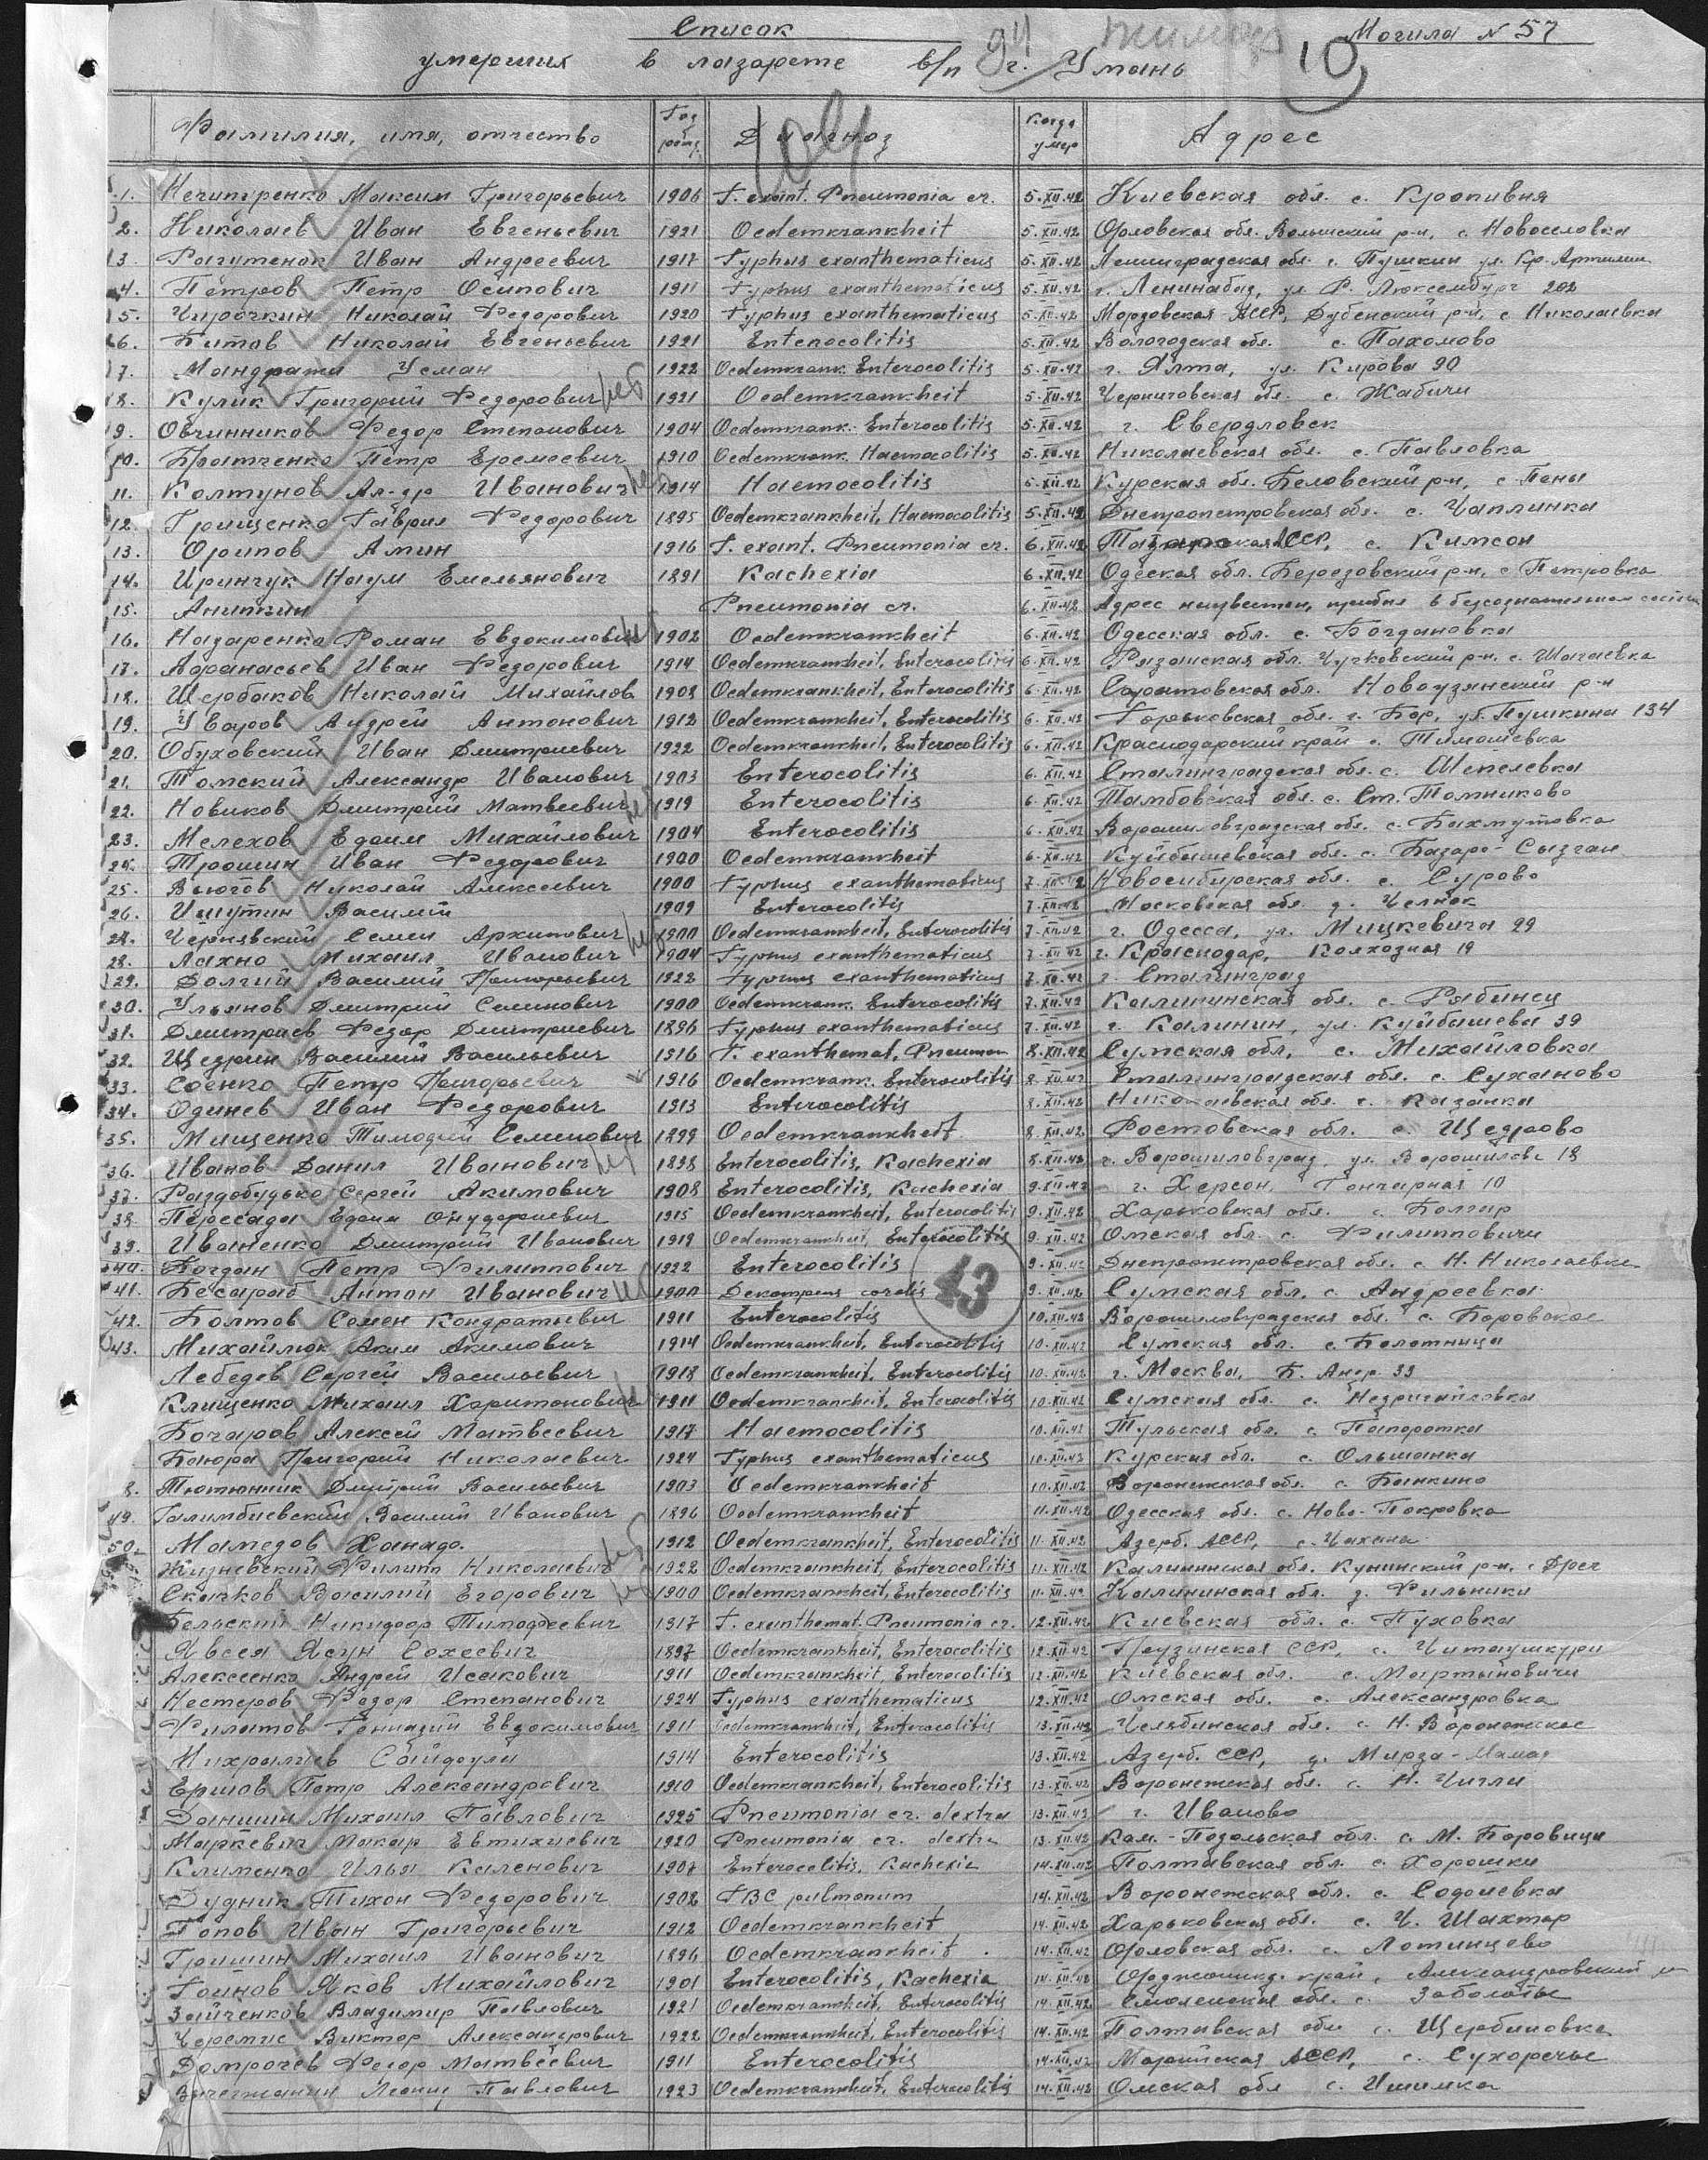 Список
Могила № 57
умерших в лазарете в/п г. Умань
10
Фамилия, имя, отчество Год рожд. Диагноз Когда умер Адрес
1. Нечипуренко Максим Григорьевич 1906 T. exant. Pneumonia cr. 5.XII.42 Киевская обл. с. Кропивня
2. Николаев Иван Евгеньевич 1921 Oedemkrankheit 5.XII.42 Орловская обл. р-н, с. Новоселовка
3. Рагутенок Иван Андреевич 1917 Typhus exanthematicus 5.XII.42 Ленинградская обл. г. Пушкин ул. Кр. Артилл.
4. Петров Петр Осипович 1911 Typhus exanthematicus 5.XII.42 г. Ленинабад, ул. Р. Люксембург 202
5. Чирочкин Николай Федорович 1920 Typhus exanthematicus 5.XII.42 Мордовская АССР, Дубенский р-н, с Николаевка
6. Битов Николай Евгеньевич 1921 Enterocolitis 5.XII.42 Вологодская обл. с. Пахомово
7. Усман 1922 Oedemkrank. Enterocolitis 5.XII.42 г. Ялта, ул. Кирова 90
8. Кулик Григорий Федорович 1921 Oedemkrankheit 5.XII.42 Черниговская обл. с. Жабичи
9. Овчинников Федор Степанович 1904 Oedemkrank. Enterocolitis 5.XII.42 г. Свердловск
10. Братченко Петр Еремеевич 1910 Oedemkrank. Haemocolitis 5.XII.42 Николаевская обл. с. Павловка
11. Колтунов Ал-др Иванович 1914 Haemocolitis 5.XII.42 Курская обл. Беловский р-н, с. Пены
12. Грищенко Гаврил Федорович 1895 Oedemkrankheit, Haemocolitis 5.XII.42 Днепропетровская обл. с. Чаплинка
13. Орипов Амин 1916 T. exant. Pneumonia cr. 6.XII.42 Татарская АССР, с. Кимсон
14. Иринчук Наум Емельянович 1891 Kachexia 6.XII.42 Одесская обл. Березовский р-н, с Петровка
15. Аниткин Pneumonia cr. 6.XII.42 Адрес неизвестен, прибыл в безсознательном
16. Назаренко Роман Евдокимович 1902 Oedemkrankheit 6.XII.42 Одесская обл. с. Богдановка
17. Афанасьев Иван Федорович 1914 Oedemkrankheit, Enterocolitis 6.XII.42 Рязанская обл. Чучковский р-н. с.
18. Щербаков Николай Михайлов 1908 Oedemkrankheit, Enterocolitis 6.XII.42 Саратовская обл. Новоузянский р-н
19. Уваров Андрей Антонович 1912 Oedemkrankheit, Enterocolitis 6.XII.42 Горьковская обл. г. Бор, ул. Пушкина 134
20. Обуховский Иван Дмитриевич 1922 Oedemkrankheit, Enterocolitis 6.XII.42 Краснодарский край с. Тимошевка
21. Томский Александр Иванович 1903 Enterocolitis 6.XII.42 Сталинградская обл. с. Шепелевка
22. Новиков Дмитрий Матвеевич 1919 Enterocolitis 6.XII.42 Тамбовская обл. с. Ст. Томниково
23. Мелехов Ефим Михайлович 1904 Enterocolitis 6.XII.42 Ворошиловградская обл. с. Бахмутовка
24. Трошин Иван Федорович 1900 Oedemkrankheit 6.XII.42 Куйбышевская обл. с. Базарс- Сызган
25. Вьюгов Николай Алексеевич 1900 Typhus exanthematicus 7.XII.42 Новосибирская обл. с. Сурово
26. Ишутин Василий 1909 Enterocolitis 7.XII.42 Московская обл. д. Челнок
27. Чернявский Семен Архипович 1900 Oedemkrankheit, Enterocolitis 7.XII.42 г. Одесса, ул. Мицкевича 29
28. Лахно Михаил Иванович 1904 Typhus exanthematicus 7.XII.42 г. Краснодар, Колхозная 19
29. Долгий Василий Григорьевич 1922 Typhus exanthematicus 7.XII.42 г. Сталинград
30. Ульянов Дмитрий Семенович 1900 Oedemkrank. Enterocolitis 7.XII.42 Калининская обл. с. Рябинец
31. Дмитриев Федор Дмитриевич 1896 Typhus exanthematicus 7.XII.42 г. Калинин, ул. Куйбашева 39
32. Щедрин Василий Васильевич 1916 T. exanthemat, Pneumon 8.XII.42 Сумская обл, с. Михайловка
33. Соенко Петр Григорьевич 1916 Oedemkrank. Enterocolitis 8.XII.42 Сталинградская обл. с. Суханово
34. Одинев Иван Федорович 1913 Enterocolitis 8.XII.42 Николаевская обл. с. Казанка
35. Мищенко Тимофей Семенович 1899 Oedemkrankheit 8.XII.42 Ростовская обл. с. Щедрово
36. Иванов Данил Иванович 1898 Enterocolitis, Kachexia 8.XII.42 г. Ворошиловград, ул. Ворошилова 18
37. Раздобудько Сергей Акимович 1908 Enterocolitis, Kachexia 9.XII.42 г. Херсон, Гончарная 10
38. Пересада Ефим Онуфриевич 1915 Oedemkrankheit, Enterocolitis 9.XII.42 Харьковская обл. с.
39. Иваненко Дмитрий Иванович 1919 Oedemkrankheit, Enterocolitis 9.XII.42 Омская обл. с. Филипповичи
40. Богдан Петр Филиппович 1922 Enterocolitis 9.XII.42 Днепропетровская обл. с Н. Николаевка
41. Бесараб Антон Иванович 1900 Dekompens cordis 9.XII.42 Сумская обл. с. Андреевка
42. Болтов Семен Кондратьевич 1911 Enterocolitis 10.XII.42 Ворошиловградская обл. с. Боровское
43. Михайлюк Аким Акимович 1914 Oedemkrankheit, Enterocolitis 10.XII.42 Сумская обл. с. Болотница
43
Лебедев Сергей Васильевич 1918 Oedemkrankheit, Enterocolitis 10.XII.42 г. Москва, Б. 33
Клищенко Михаил Харитонович 1911 Oedemkrankheit, Enterocolitis 10.XII.42 Сумская обл. с. Недригайловка
Бочаров Алексей Матвеевич 1917 Haemocolitis 10.XII.42 Тульская обл. с. Папоротка
Баюра Григорий Николаевич 1924 Typhus exanthematicus 10.XII.42 Курская обл. с. Ольшанка
8. Тютюнник Дмитрий Васильевич 1903 Oedemkrankheit 11.XII.42 Воронежская обл. с. Банкино
49. Галимбиевский Василий Иванович 1896 Oedemkrankheit 11.XII.42 Одесская обл. с. Ново-Покровка
50. Мамедов Ханадо. 1912 Oedemkrankheit, Enterocolitis 11.XII.42 Азерб. АССР, с.
Жизневский Филипп Николаевич 1922 Oedemkrankheit, Enterocolitis 11.XII.42 Калининская обл. Кунинский р-н.
Скачков Василий Егорович 1900 Oedemkrankheit, Enterocolitis 11.XII.42 Калининская обл. д. Фильники
Бельский Никифор Тимофеевич 1917 T. exanthemat. Pneumonia cr. 12.XII.42 Киевская обл. с. Пуховка
Явсея Ясун Сохеевич 1897 Oedemkrankheit, Enterocolitis 12.XII.42 Грузинская ССР, с. Читаушкури
Алексеенко Андрей Исакович 1911 Oedemkrankheit, Enterocolitis 12.XII.42 Киевская обл. с. Мартыновичи
Нестеров Федор Степанович 1924 Typhus exanthematicus 12.XII.42 Омская обл. с. Александровка
Филатов Геннадий Евдокимович 1911 Oedemkrankheit, Enterocolitis 13.XII.42 Челябинская обл. с. Н. Воронежское
Михралиев Сайфули 1914 Enterocolitis 13.XII.42 Азерб. ССР, д. Мирза-
Ершов Петр Александрович 1910 Oedemkrankheit, Enterocolitis 13.XII.42 Воронежская обл. с. Н. Чигли
Даншин Михаил Павлович 1925 Pneumonia cr. dextra 13.XII.42 г. Иваново
Маркевич Макар Евтихиевич 1920 Pneumonia cr. dextra 13.XII.42 Кам.-Подольская обл. с. М. Боровица
Клименко Илья Каленович 1907 Enterocolitis, Kachexia 14.XII.42 Полтавская обл. с. Хорошки
Дудник Тихон Федорович 1902 TBC pulmonum 14.XII.42 Воронежская обл. с. Содоievka
Попов Иван Григорьевич 1912 Oedemkrankheit 14.XII.42 Харьковская обл. с. Ч. Шахтар
Гришин Михаил Иванович 1896 Oedemkrankheit 14.XII.42 Орловская обл. с. Лотинцево
Гоинов Яков Михайлович 1901 Enterocolitis, Kachexia 14.XII.42 Орджоникид. край, Александровский
Зайченков Владимир Павлович 1921 Oedemkrankheit, Enterocolitis 14.XII.42 Смоленская обл. с. Заболотье
Черемис Виктор Александрович 1922 Oedemkrankheit, Enterocolitis 14.XII.42 Полтавская обл. с. Щербиновка
Домрачев Федор Матвеевич 1911 Enterocolitis 14.XII.42 Марийская АССР, с. Сухоречье
Леонид Павлович 1923 Oedemkrankheit, Enterocolitis 14.XII.42 Омская обл с. Ишимка